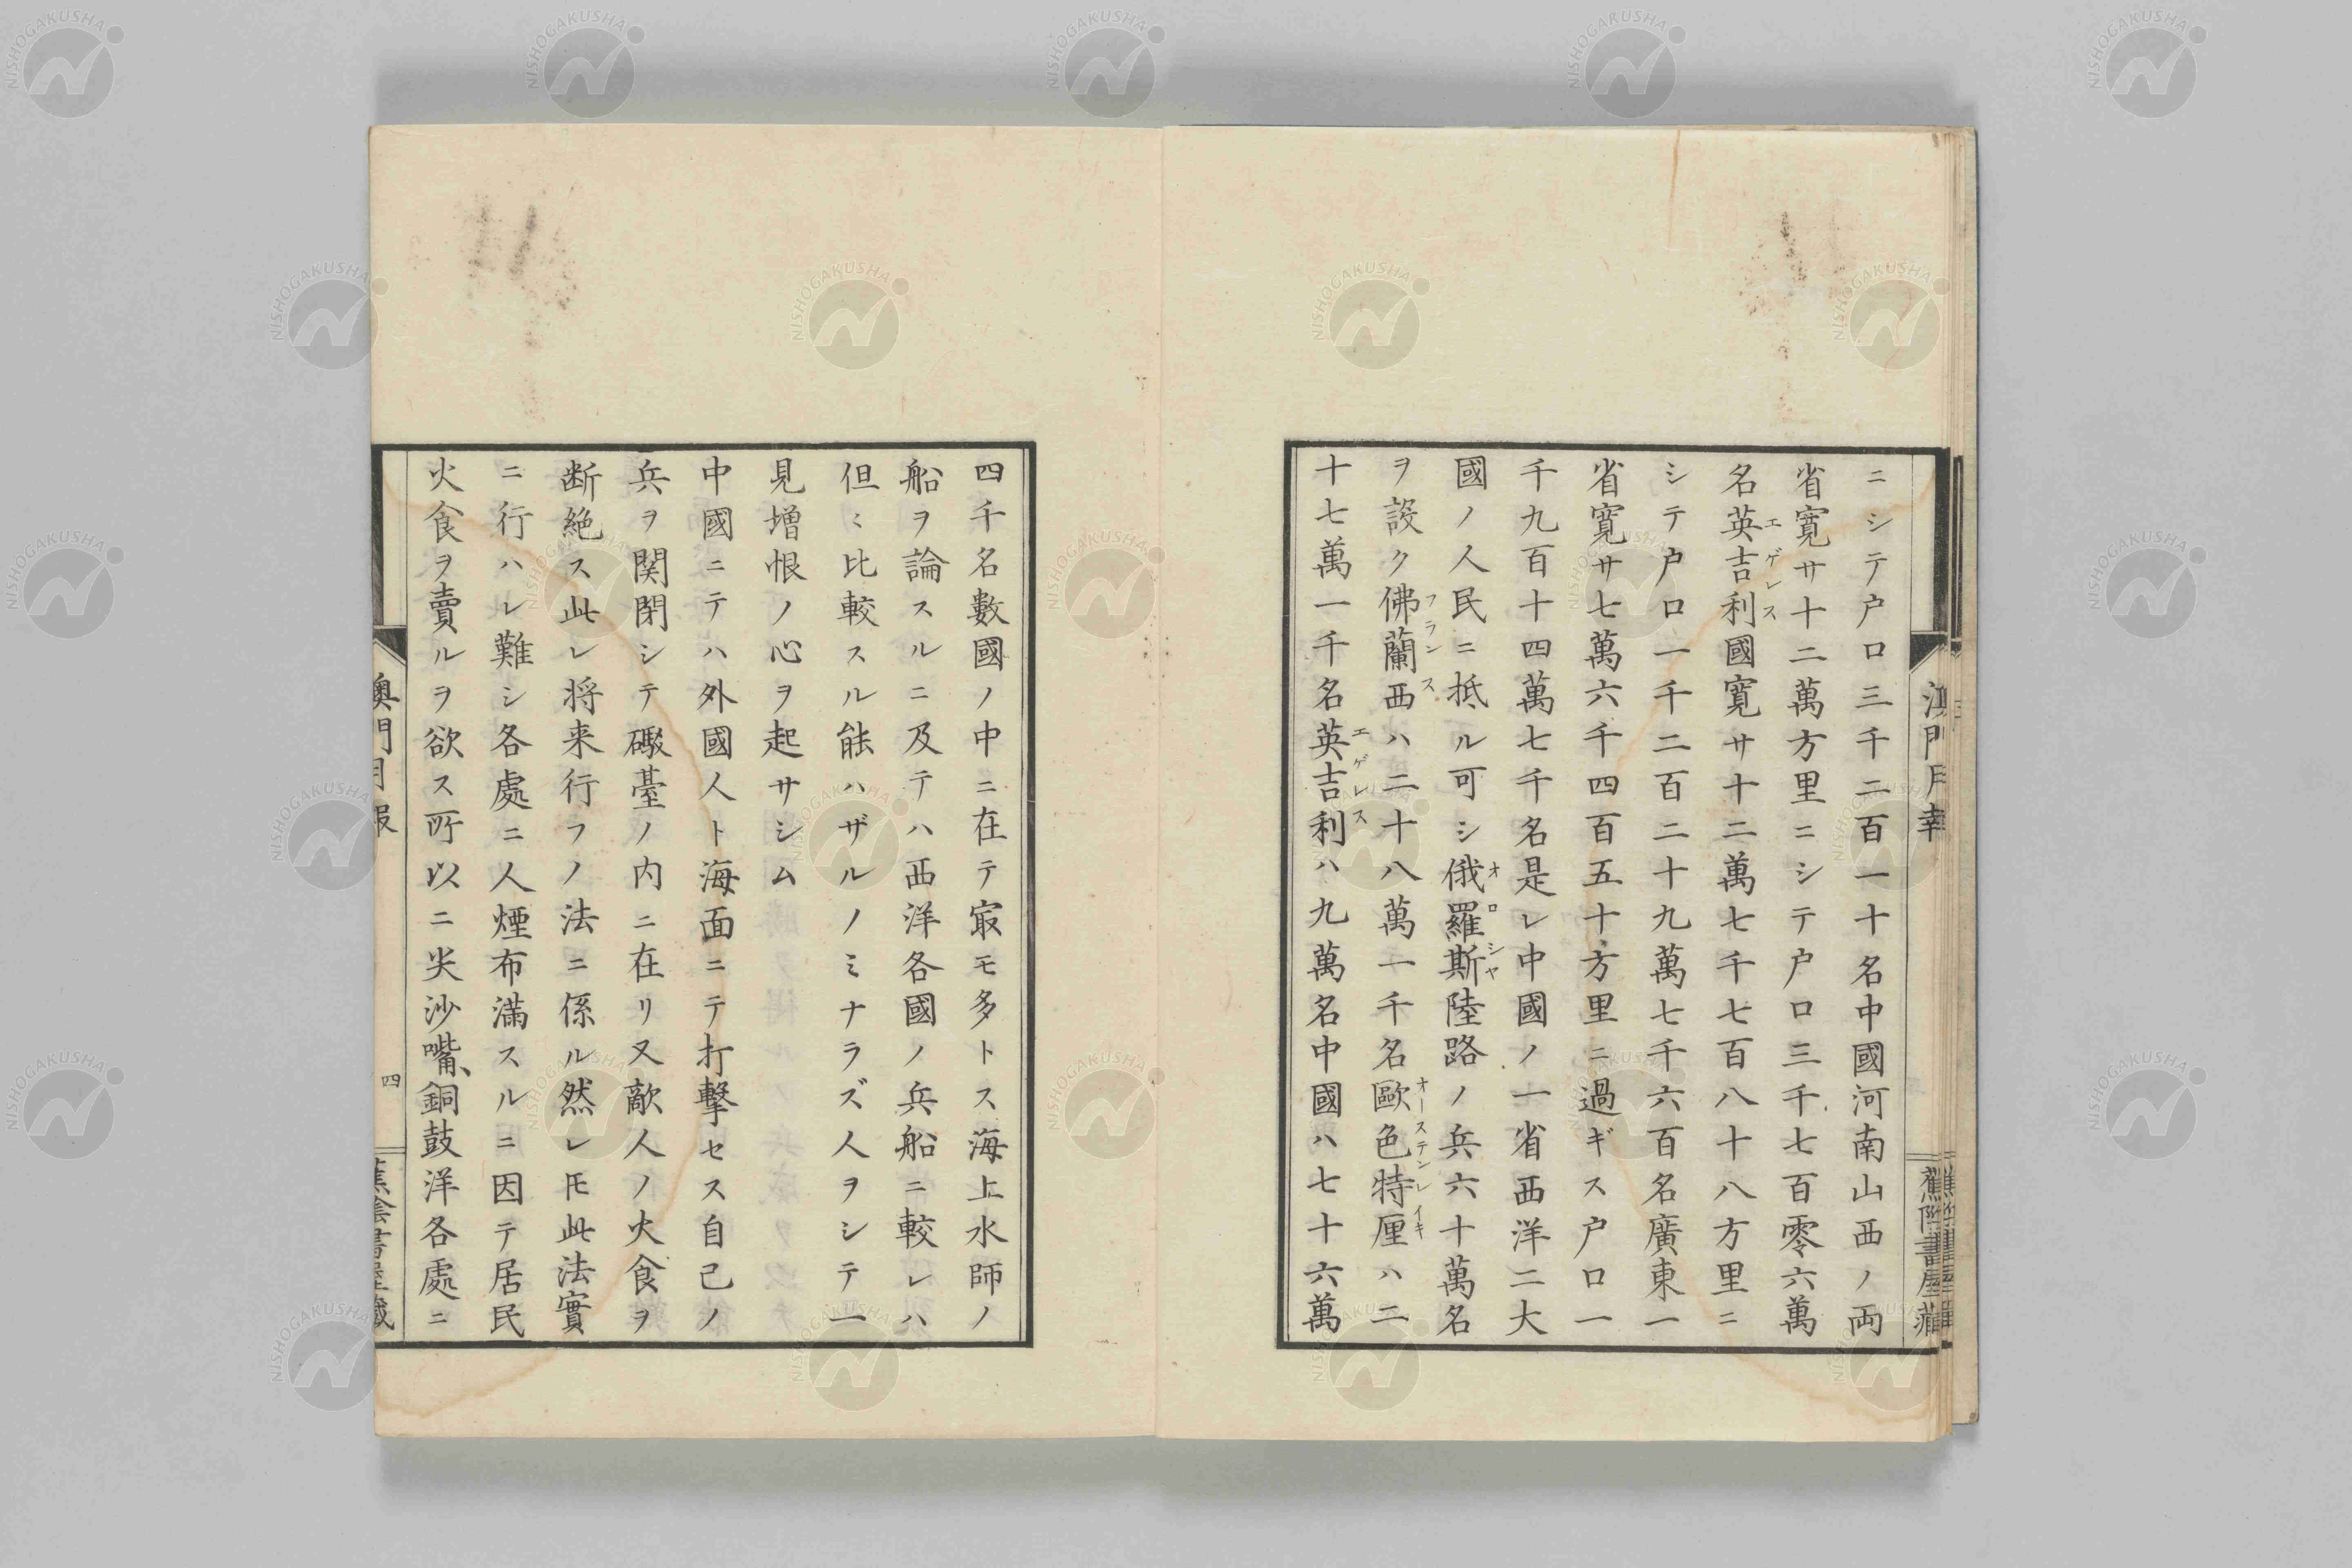 ニシテ户口三千二百一十名中國河南山西ノ両
省寛サ十二萬方里ニシテ户口三千七百零六萬
名英吉利國寛サ十二萬七千七百八十八方里ニ
エゲレス
シテ户口一千二百二十九萬七千六百名廣東一
省寛サ七萬六千四百五十方里ニ過ギス户口一
千九百十四萬七千名是レ中國ノ一省西洋二大
國ノ人民ニ抵ル可シ俄羅斯陸路ノ兵六十萬名
オロシヤ
ヲ設ク佛蘭西ハ二十八萬一千名歐色特厘ハ二
フランス
オーステンレイキ
十七萬一千名英吉利ハ九萬名中國ハ七十六萬
エゲレス
四千名數國ノ中ニ在テ㝡モ多トス海上水師ノ
船ヲ論スルニ及テハ西洋各國ノ兵船ニ較レハ
但〻比較スル能ハザルノミナラズ人ヲシテ一
見増恨ノ心ヲ起サシム
中國ニテハ外國人ト海面ニテ打撃セス自己ノ
兵ヲ関閉シテ礟臺ノ内ニ在リ又敵人ノ火食ヲ
断絶ス此レ将来行フノ法ニ係ル然レ𪜈此法實
ニ行ハレ難シ各處ニ人煙布滿スルニ因テ居民
火食ヲ賣ルヲ欲ス所以ニ尖沙嘴、銅鼓洋各處ニ
澳門月報
四
蕉陰書屋蔵
NISHOGAKUSHA